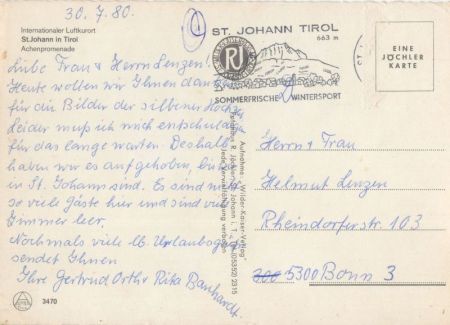 30.7.80.
Internationaler Luftkurort
St. Johann in Tirol
Achenpromenade
Liebe Frau & Herrn Lenzen!
Heute wollen wir Ihnen danken
für die Bilder der silbener Hochz.
Leider muß ich mich entschuld
für das lange warten. Deshalb
haben wir es aufgehoben, bis
in St. Johann sind. Es sind
so viele Gäste hier und sind viel
Zimmer leer.
Nochmals viele lb. Urlaubsg.
sendet Ihnen
Ihre Gertrud Orth & Rita Banhardt
3470
ST. JOHANN TIROL
663 m
RJ
SOMMERFRISCHE WINTERSPORT
Aufnahme: „Wilder-Kaiser-Verlag"
Johannes R. Jöchler, St. Johann i. T., (05352) 2315
Jede Vervielfältigung verboten
EINE
JÖCHLER
KARTE
Herrn & Frau
Helmut Lenzen
Rheindorferstr. 103
5300 Bonn 3